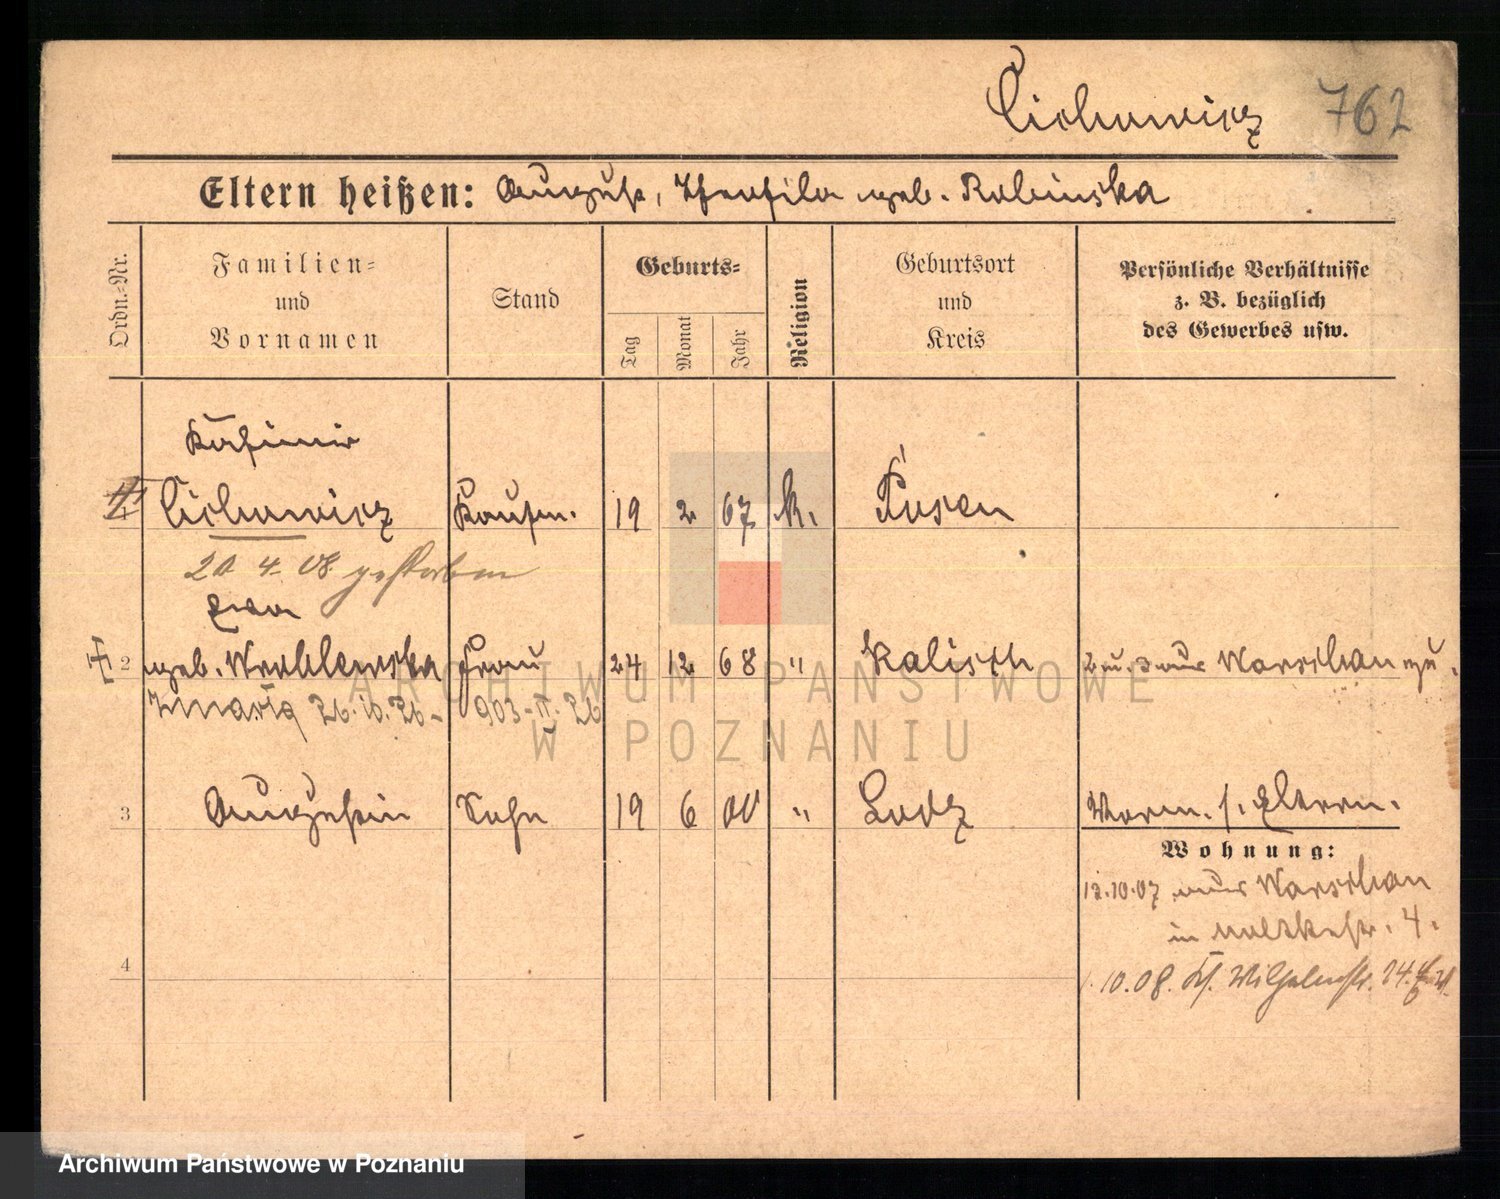 Cichowicz 762
Eltern heißen: August, Theofila geb. Rabinska
Ordn.-Nr.
Familien-
und
Vornamen
Stand
Geburts-
Tag
Monat
Jahr
Religion
Geburtsort
und
Kreis
Persönliche Verhältnisse
z. B. bezüglich
des Gewerbes usw.
Kasimir
Cichowicz Kaufm. 19 2 67 k. Posen
20 4. 08 gestorben
Ewa
2 geb. Wroblewska Frau 24 12 68 " Kalisch 2 u. 3 aus Warschau zu.
Zmarła 26.10.26 - 903-II.26
3 Augustin Sohn 19 6 00 " Lodz Vorm. s. Eltern.
Wohnung:
12.10.07 aus Warschau
in Moltkestr. 4.
4
1.10.08. Wilhelmstr. 24.
ARCHIWUM PAŃSTWOWE
W POZNANIU
Archiwum Państwowe w Poznaniu